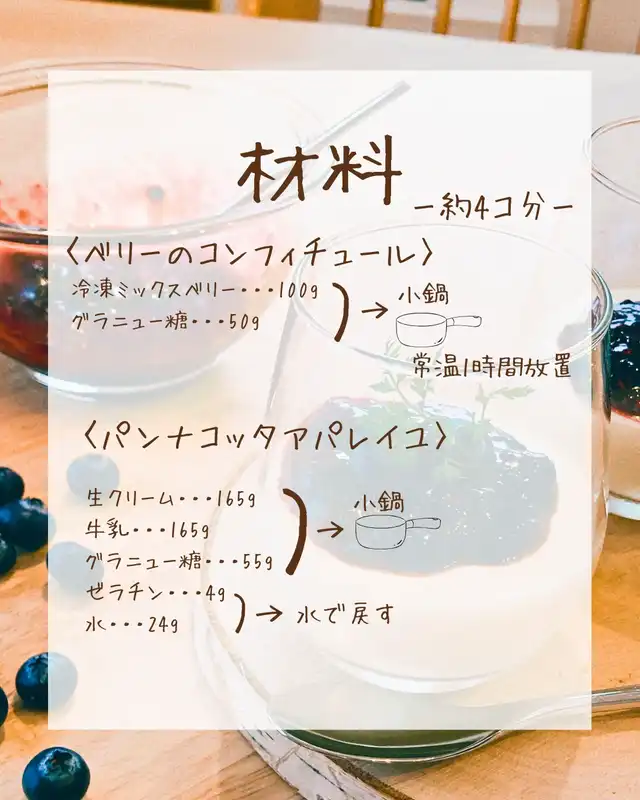 材料
ー約4コ分ー
〈ベリーのコンフィチュール〉
冷凍ミックスベリー・・・100g
グラニュー糖・・・50g
→ 小鍋
常温1時間放置
〈パンナコッタアパレイユ〉
生クリーム・・・165g
牛乳・・・165g
グラニュー糖・・・55g
→ 小鍋
ゼラチン・・・4g
水・・・24g
→ 水で戻す